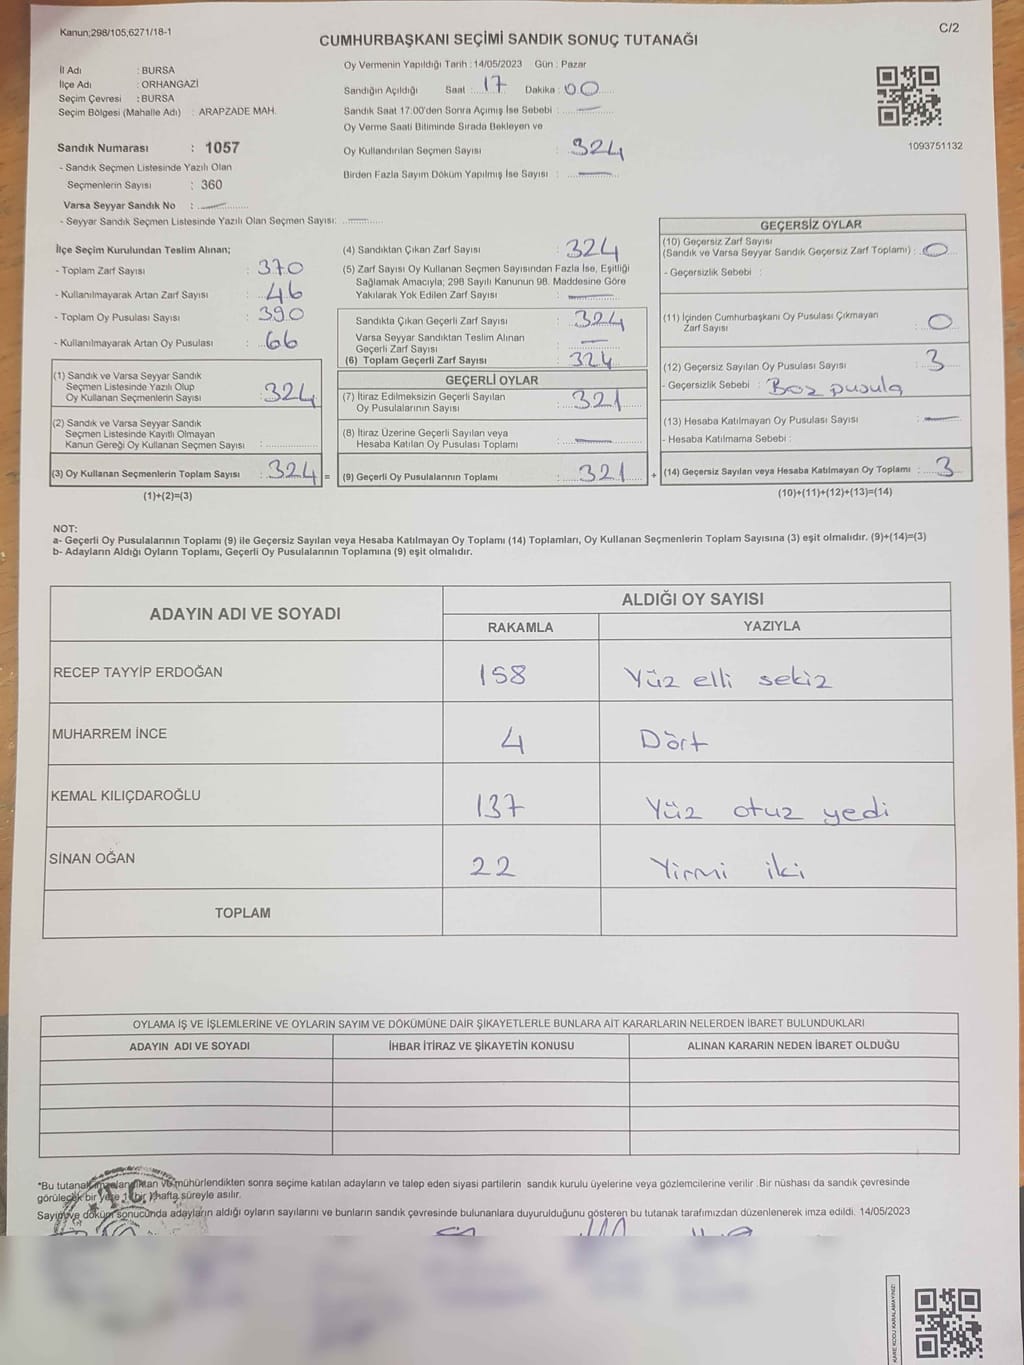 Kanun;298/105,6271/18-1
C/2
CUMHURBAŞKANI SEÇİMİ SANDIK SONUÇ TUTANAĞI
İl Adı : BURSA
İlçe Adı : ORHANGAZİ
Seçim Çevresi : BURSA
Seçim Bölgesi (Mahalle Adı) : ARAPZADE MAH.
Sandık Numarası : 1057
- Sandık Seçmen Listesinde Yazılı Olan
Seçmenlerin Sayısı : 360
Varsa Seyyar Sandık No :
- Seyyar Sandık Seçmen Listesinde Yazılı Olan Seçmen Sayısı:
Oy Vermenin Yapıldığı Tarih : 14/05/2023 Gün : Pazar
Sandığın Açıldığı Saat : 17 Dakika : 00
Sandık Saat 17:00'den Sonra Açımış İse Sebebi : —
Oy Verme Saati Bitiminde Sırada Bekleyen ve
Oy Kullandırılan Seçmen Sayısı : 324
Birden Fazla Sayım Döküm Yapılmış İse Sayısı : —
1093751132
İlçe Seçim Kurulundan Teslim Alınan;
- Toplam Zarf Sayısı : 370
- Kullanılmayarak Artan Zarf Sayısı : 46
- Toplam Oy Pusulası Sayısı : 390
- Kullanılmayarak Artan Oy Pusulası : 66
(1) Sandık ve Varsa Seyyar Sandık
Seçmen Listesinde Yazılı Olup
Oy Kullanan Seçmenlerin Sayısı : 324
(2) Sandık ve Varsa Seyyar Sandık
Seçmen Listesinde Kayıtlı Olmayan
Kanun Gereği Oy Kullanan Seçmen Sayısı :
(3) Oy Kullanan Seçmenlerin Toplam Sayısı : 324 =
(1)+(2)=(3)
(4) Sandıktan Çıkan Zarf Sayısı : 324
(5) Zarf Sayısı Oy Kullanan Seçmen Sayısından Fazla İse, Eşitliği
Sağlamak Amacıyla; 298 Sayılı Kanunun 98. Maddesine Göre
Yakılarak Yok Edilen Zarf Sayısı : —
Sandıkta Çıkan Geçerli Zarf Sayısı : 324
Varsa Seyyar Sandıktan Teslim Alınan
Geçerli Zarf Sayısı : —
(6) Toplam Geçerli Zarf Sayısı : 324
GEÇERLİ OYLAR
(7) İtiraz Edilmeksizin Geçerli Sayılan
Oy Pusulalarının Sayısı : 321
(8) İtiraz Üzerine Geçerli Sayılan veya
Hesaba Katılan Oy Pusulası Toplamı : —
(9) Geçerli Oy Pusulalarının Toplamı : 321 +
GEÇERSİZ OYLAR
(10) Geçersiz Zarf Sayısı
(Sandık ve Varsa Seyyar Sandık Geçersiz Zarf Toplamı) : 0
- Geçersizlik Sebebi :
(11) İçinden Cumhurbaşkanı Oy Pusulası Çıkmayan
Zarf Sayısı : 0
(12) Geçersiz Sayılan Oy Pusulası Sayısı : 3
- Geçersizlik Sebebi : Boz pusula
(13) Hesaba Katılmayan Oy Pusulası Sayısı : —
- Hesaba Katılmama Sebebi :
(14) Geçersiz Sayılan veya Hesaba Katılmayan Oy Toplamı : 3
(10)+(11)+(12)+(13)=(14)
NOT:
a- Geçerli Oy Pusulalarının Toplamı (9) ile Geçersiz Sayılan veya Hesaba Katılmayan Oy Toplamı (14) Toplamları, Oy Kullanan Seçmenlerin Toplam Sayısına (3) eşit olmalıdır. (9)+(14)=(3)
b- Adayların Aldığı Oyların Toplamı, Geçerli Oy Pusulalarının Toplamına (9) eşit olmalıdır.
ADAYIN ADI VE SOYADI
ALDIĞI OY SAYISI
RAKAMLA YAZIYLA
RECEP TAYYİP ERDOĞAN 158 Yüz elli sekiz
MUHARREM İNCE 4 Dört
KEMAL KILIÇDAROĞLU 137 Yüz otuz yedi
SİNAN OĞAN 22 Yirmi iki
TOPLAM
OYLAMA İŞ VE İŞLEMLERİNE VE OYLARIN SAYIM VE DÖKÜMÜNE DAİR ŞİKAYETLERLE BUNLARA AİT KARARLARIN NELERDEN İBARET BULUNDUKLARI
ADAYIN ADI VE SOYADI İHBAR İTİRAZ VE ŞİKAYETİN KONUSU ALINAN KARARIN NEDEN İBARET OLDUĞU
*Bu tutanak imzalandıktan ve mühürlendikten sonra seçime katılan adayların ve talep eden siyasi partilerin sandık kurulu üyelerine veya gözlemcilerine verilir .Bir nüshası da sandık çevresinde
görülecek bir yere 1 (bir) hafta süreyle asılır.
Sayım ve döküm sonucunda adayların aldığı oyların sayılarını ve bunların sandık çevresinde bulunanlara duyurulduğunu gösteren bu tutanak tarafımızdan düzenlenerek imza edildi. 14/05/2023
T.C.
KARE KODU KARALAMAYINIZ!